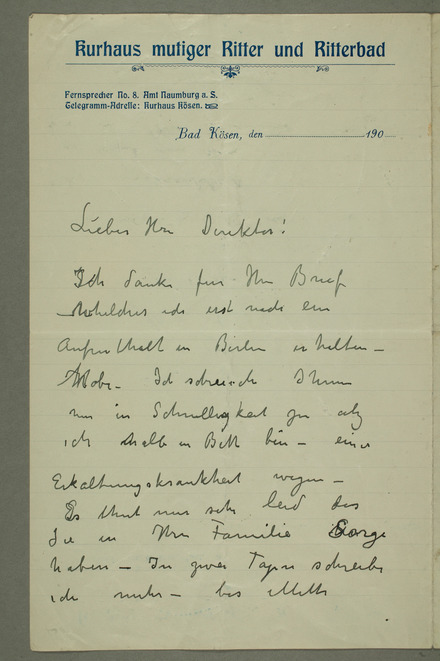 Kurhaus mutiger Ritter und Ritterbad
Fernsprecher No. 8. Amt Naumburg a. S.
Telegramm-Adresse: Kurhaus Kösen.
Bad Kösen, den 190
Lieber Herr Direktor!
Ich danke für Ihren Brief
welchen ich erst nach ein
Aufenthalt in Berlin erhalten
habe – Ich schreibe Ihnen
nur in Schnelligkeit
ich halb in Bett bin – einer
Erkaltungskrankheit wegen –
Es thut mir sehr leid das
Sie in Ihre Familie Sorge
haben – In zwei Tagen schreibe
ich mehr – bis